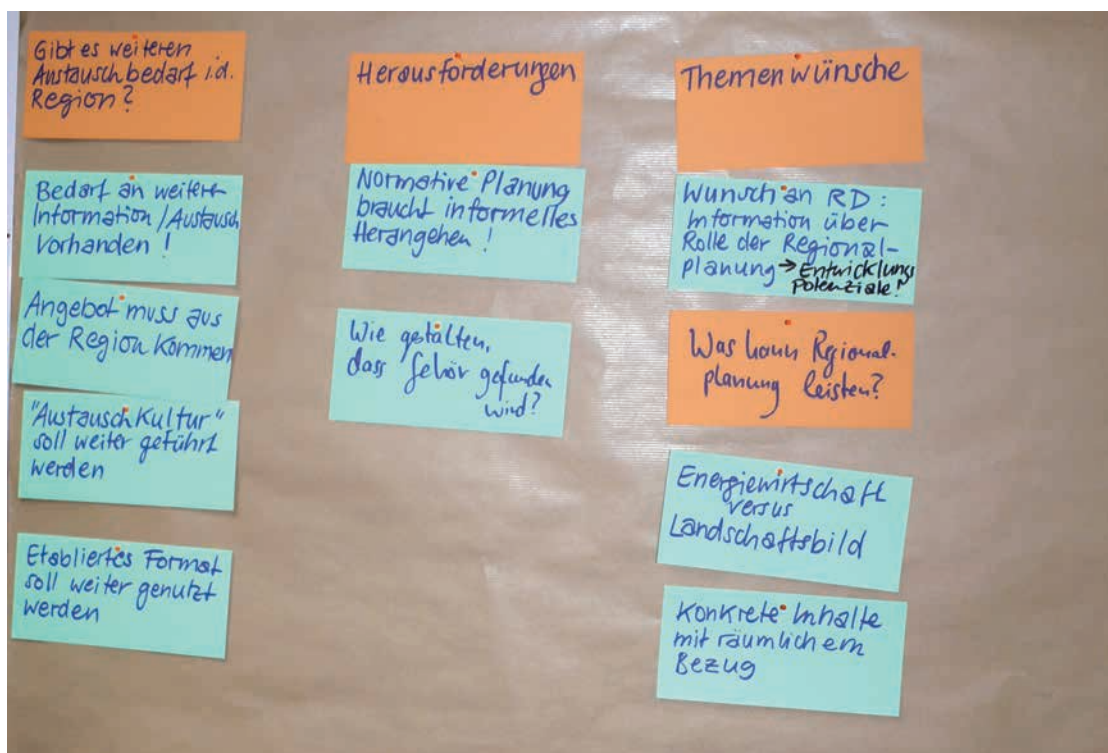 Gibt es weiteren
Austauschbedarf i.d.
Region?
Bedarf an weiterer
Information/Austausch
vorhanden!
Angebot muss aus
der Region kommen
"Austauschkultur"
soll weiter geführt
werden
Etabliertes Format
soll weiter genutzt
werden
Herausforderungen
Normative Planung
braucht informelles
Herangehen!
Wie gestalten,
dass Gehör gefunden
wird?
Themenwünsche
Wunsch an RD:
Information über
Rolle der Regional-
planung → Entwicklungs
Potenziale!
Was kann Regional-
planung leisten?
Energiewirtschaft
versus
Landschaftsbild
Konkrete Inhalte
mit räumlichem
Bezug